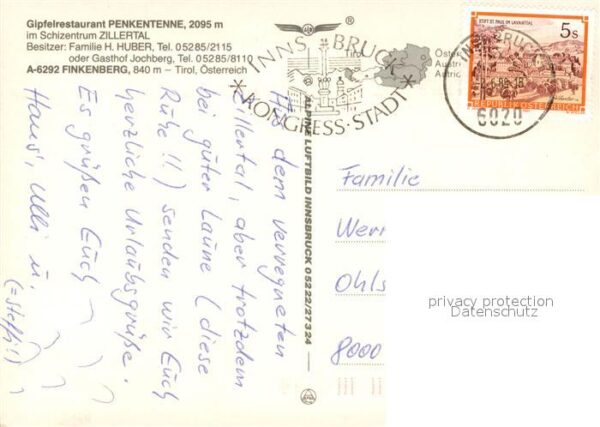 Gipfelrestaurant PENKENTENNE, 2095 m
im Schizentrum ZILLERTAL
Besitzer: Familie H. HUBER, Tel. 05285/2115
oder Gasthof Jochberg, Tel. 05285/8110
A-6292 FINKENBERG, 840 m – Tirol, Österreich
Aus dem verregneten
Zillertal, aber trotzdem
bei guter Laune (diese
Ruhe!!) senden wir Euch
herzliche Urlaubsgrüße.
Es grüßen Euch
Hans, Ulli u.
(=Steffi!)
INNSBRUCK
*KONGRESS-STADT*
Tirol
Öster
Austri
Autric
ALPINE LUFTBILD INNSBRUCK 05222/27324
STIFT ST. PAUL IM LAVANTTAL
5s
REPUBLIK ÖSTERREICH
INNSBRUCK
6020
Familie
Wern
Ohls
8000
privacy protection
Datenschutz